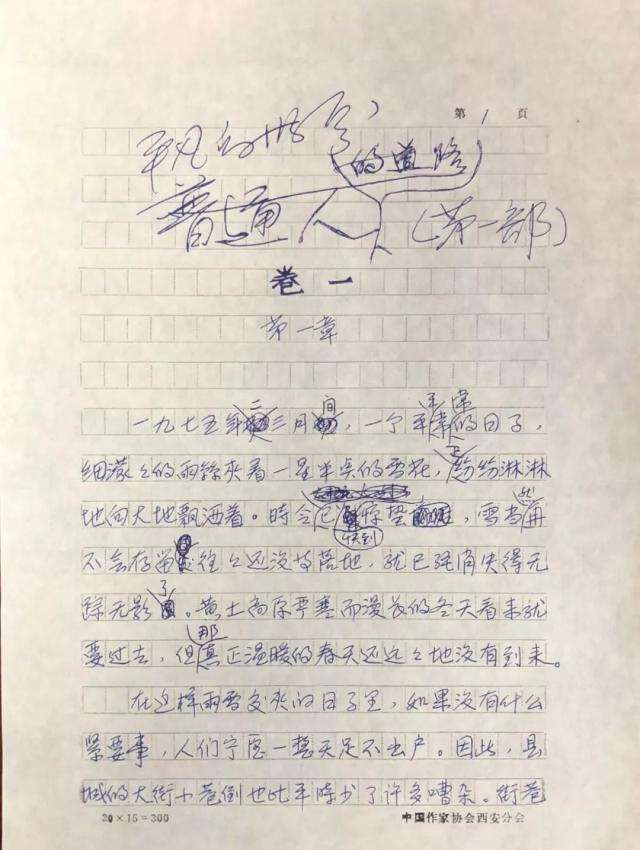 第 1 页
平凡的世界
的道路
普通人
（第一部）
卷一
第一章
二 间 平常
一九七五年三月，一个平常的日子，
细濛々的雨丝夹着一星半点的雪花，正纷纷淋淋
地向大地飘洒着。時令已快到惊蛰，雪当然再
不会存留，往々还没等落地，就已经消失得无
踪无影了。黄土高原严寒而漫长的冬天看来就
要过去，但那真正温暖的春天还远々地没有到来。
在这样雨雪交夹的日子里，如果没有什么
紧要事，人们宁愿一整天足不出户。因此，县
城的大街小巷倒也比平時少了许多嘈杂。街巷
20×15=300
中国作家协会西安分会